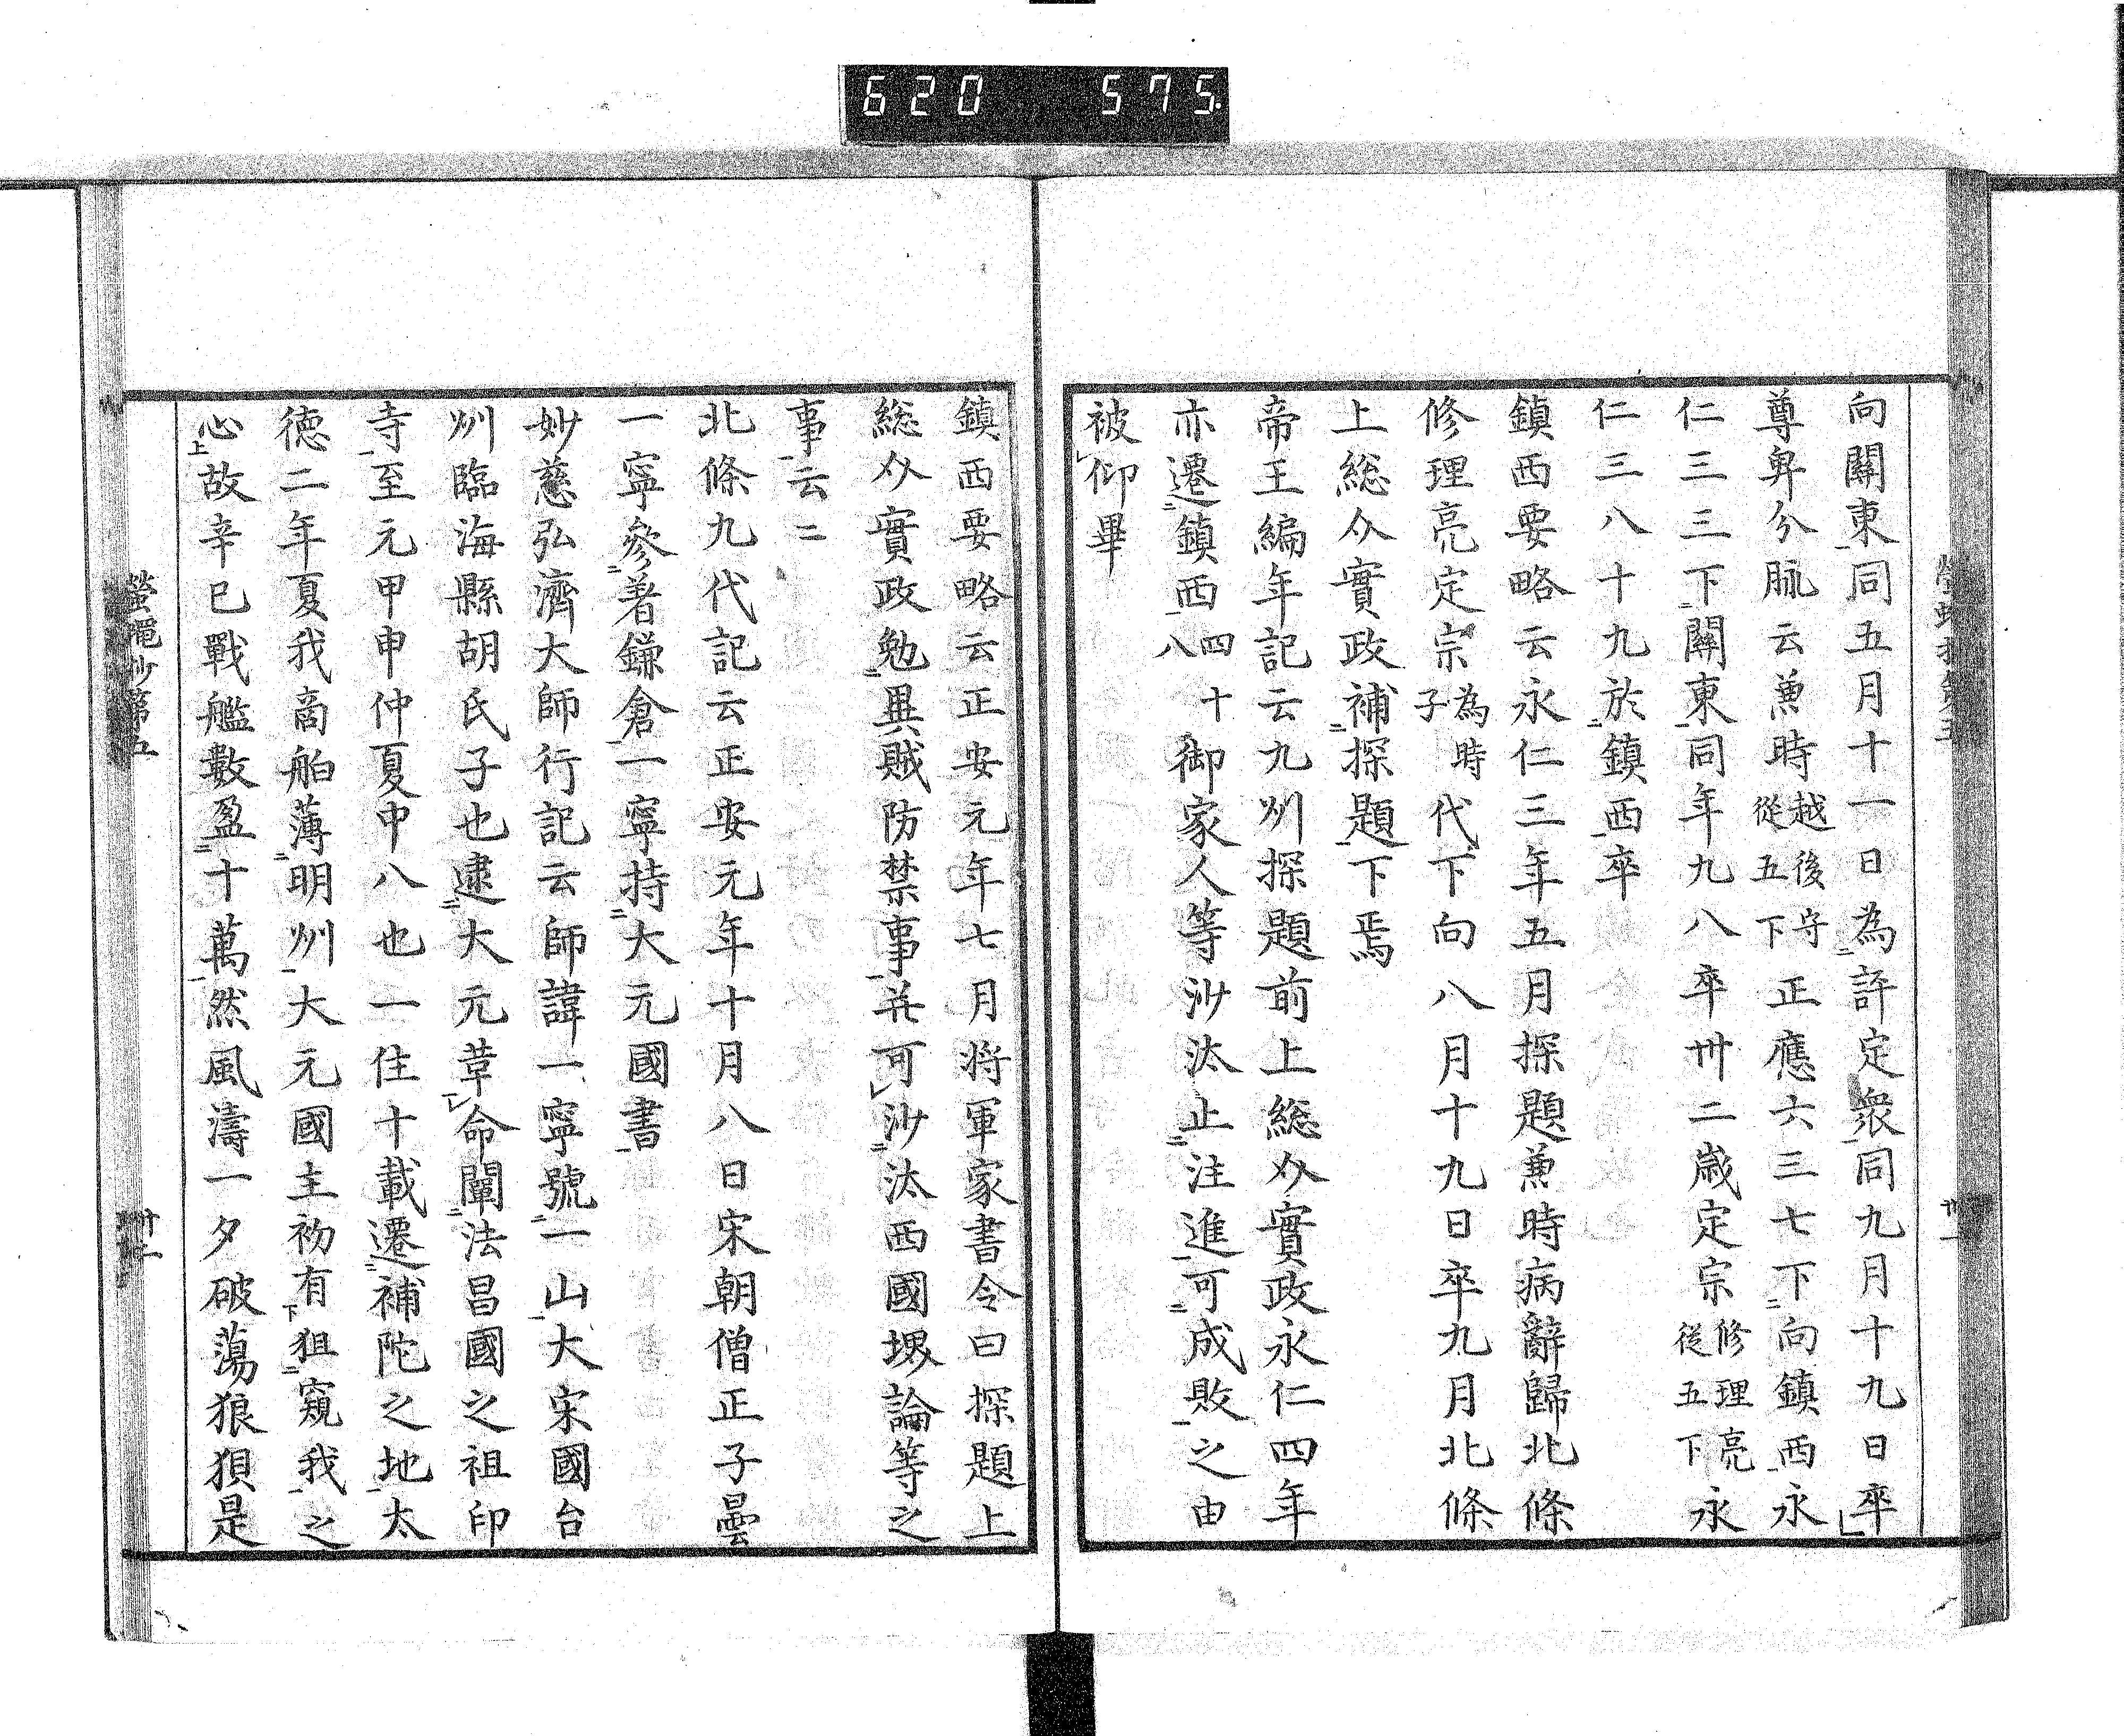 620 575.
向關東同五月十一日為評定衆同九月十九日卒
尊卑分脉云兼時越後守從五下正應六三七下向鎮西永
仁三三下關東同年九八卒卅二歳定宗修理亮從五下永
仁三八十九於鎮西卒
鎮西要略云永仁三年五月探題兼時病辭歸北條
修理亮定宗為時子代下向八月十九日卒九月北條
上総介實政補探題下焉
帝王編年記云九州探題前上総介實政永仁四年
亦遷鎮西四十八御家人等沙汰止注進可成敗之由
被仰畢
鎮西要略云正安元年七月将軍家書令曰探題上
総介實政勉異賊防禁事并可沙汰西國堺論等之
事云二
北條九代記云正安元年十月八日宋朝僧正子曇
一寧參著鎌倉一寧持大元國書
妙慈弘濟大師行記云師諱一寧號一山大宋國台
州臨海縣胡氏子也逮大元革命闡法昌國之祖印
寺至元甲申仲夏中八也一住十載遷補陀之地太
徳二年夏我商舶薄明州大元國主初有狙窺我之
心故辛巳戰艦數盈十萬然風濤一夕破蕩狼狽是
螢蠅抄第五
廿二